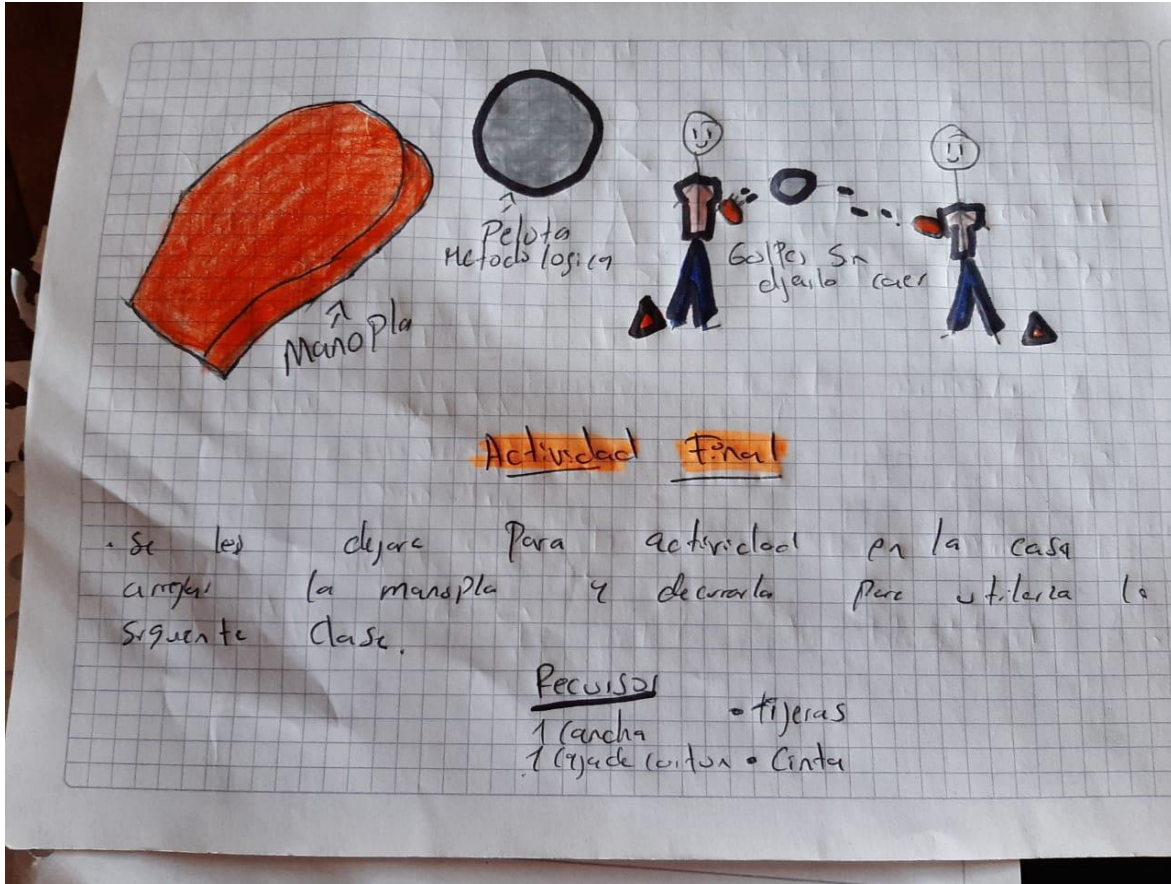 Pelota
Metodologica
Manopla
Golpes Sn
djarlo caer
Actividad Final
. Se les dejara Para actividad en la casa
arreglar la manopla y decorarla para utilarla la
siguente Clase.
Recursos
1 Cancha
• tijeras
1 Caja de carton • Cinta